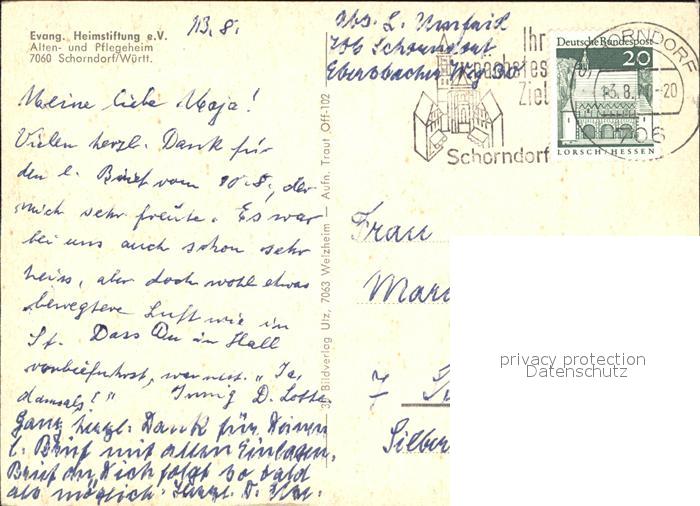 Evang. Heimstiftung e.V.
Alten- und Pflegeheim
7060 Schorndorf/Württ.
13.8.
Meine liebe Maja!
Vielen herzl. Dank für
den l. Brief vom 10.8., der
mich sehr freute. Es war
bei uns auch schon sehr
heiss, aber doch wohl etwas
bewegtere Luft wie in
St. Dass Du in Hall
vorbeifuhrst, war nett. "Ja,
damals!" Innig D. Lotte.
Ganz herzl. Dank für Deinen
l. Brief mit allen Einlagen.
Brief an Dich folgt so bald
als möglich. Herzl. D.
Abs. L.
706 Schorndorf
Ebersbacher Weg
Ihr
nächstes
Ziel
Schorndorf
Deutsche Bundespost
20
LORSCH/HESSEN
SCHORNDORF
-20
706
Bildverlag Utz, 7063 Welzheim — Aufn. Traut Off-102
Frau
Silber
privacy protection
Datenschutz